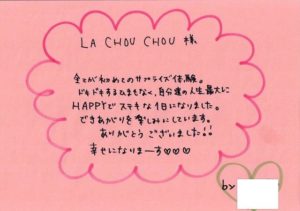 LA CHOU CHOU 様
全てが初めてのサプライズ体験。
ドキドキするひまもなく、自分達の人生最大に
HAPPYでステキな1日になりました。
できあがりを楽しみにしています。
ありがとうございました!!
幸せになりまーす♡♡♡
by